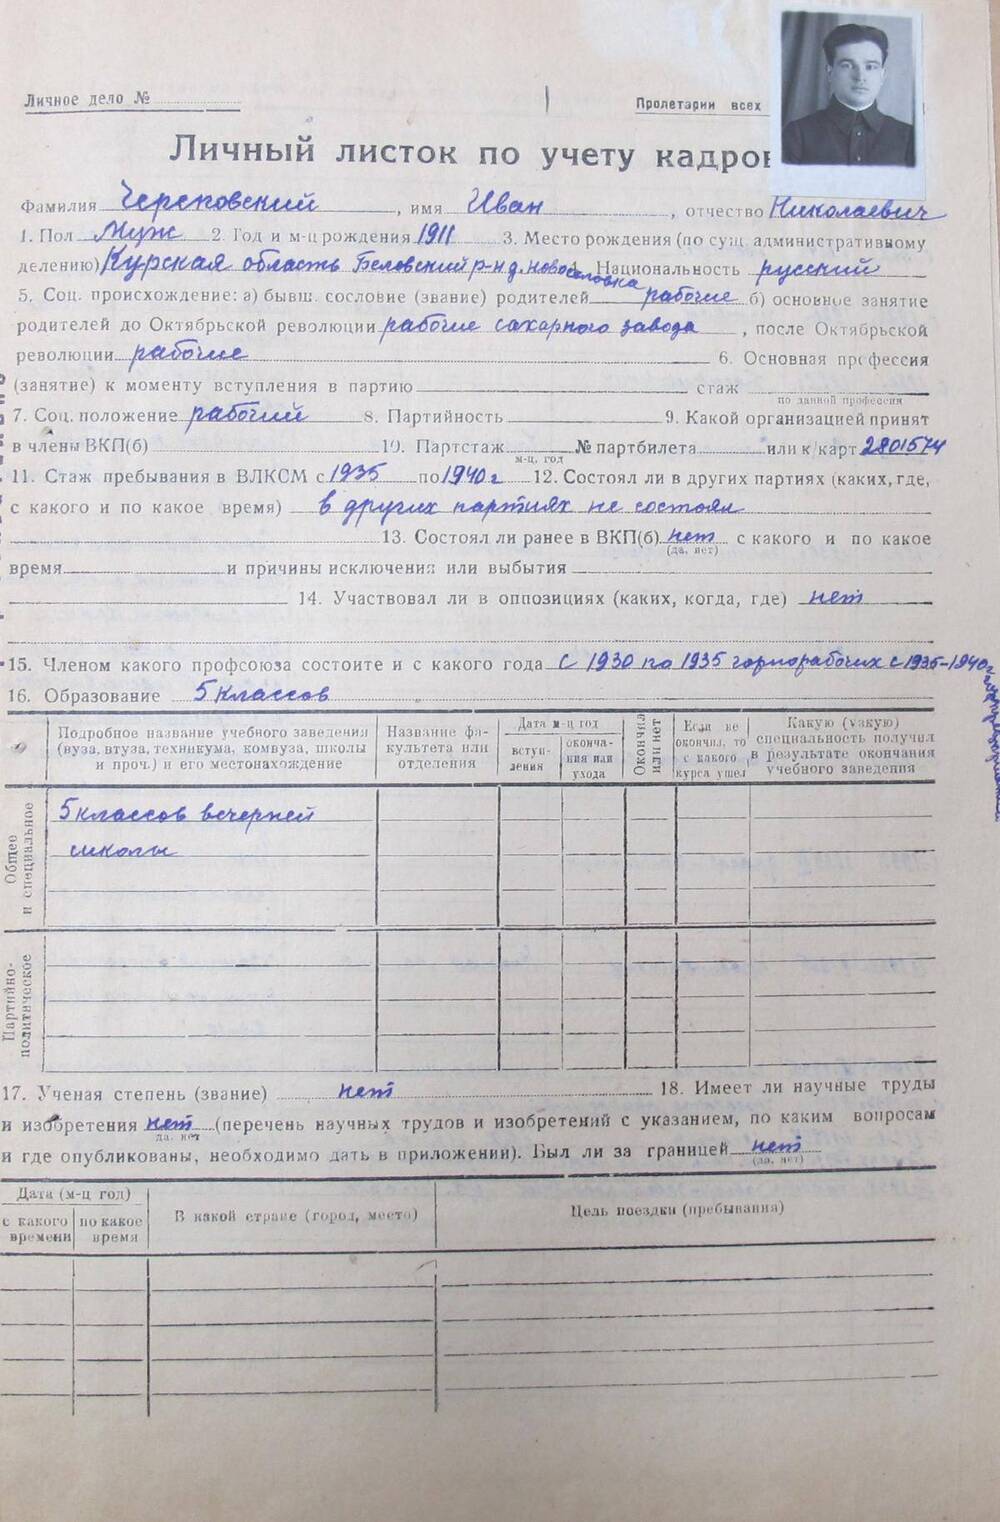 Личное дело №
Пролетарии всех
Личный листок по учету кадров
Фамилия Череповский, имя Иван, отчество Николаевич
1. Пол Муж 2. Год и м-ц рождения 1911 3. Место рождения (по сущ. административному
делению) Курская область Беловский р-н д. Новоселовка 4. Национальность русский
5. Соц. происхождение: а) бывш. сословие (звание) родителей рабочие б) основное занятие
родителей до Октябрьской революции рабочие сахарного завода, после Октябрьской
революции рабочие 6. Основная профессия
(занятие) к моменту вступления в партию стаж
по данной профессии
7. Соц. положение рабочий 8. Партийность 9. Какой организацией принят
в члены ВКП(б) 10. Партстаж № партбилета или к/карт 2801574
м-ц, год
11. Стаж пребывания в ВЛКСМ с 1935 по 1940 г 12. Состоял ли в других партиях (каких, где,
с какого и по какое время) в других партиях не состоял
13. Состоял ли ранее в ВКП(б) нет с какого и по какое
(да, нет)
время и причины исключения или выбытия
14. Участвовал ли в оппозициях (каких, когда, где) нет
15. Членом какого профсоюза состоите и с какого года с 1930 по 1935 горнорабочих с 1935-1940 г
16. Образование 5 классов
Подробное название учебного заведения
(вуза, втуза, техникума, комвуза, школы
и проч.) и его местонахождение
Название фа-
культета или
отделения
Дата м-ц год
вступ-
ления
оконча-
ния или
ухода
Окончил
или нет
Если не
окончил, то
с какого
курса ушел
Какую (узкую)
специальность получил
в результате окончания
учебного заведения
Общее
и специальное
5 классов вечерней
школы
Партийно-
политическое
17. Ученая степень (звание) нет 18. Имеет ли научные труды
и изобретения нет (перечень научных трудов и изобретений с указанием, по каким вопросам
да, нет
и где опубликованы, необходимо дать в приложении). Был ли за границей нет
(да, нет)
Дата (м-ц год)
с какого
времени
по какое
время
В какой стране (город, место)
Цель поездки (пребывания)